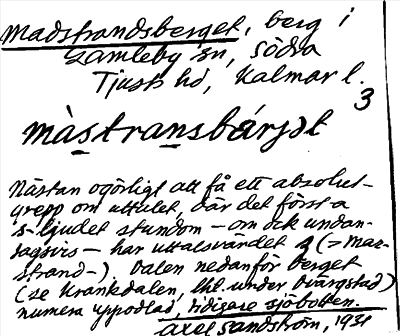 Madstrandsberget, berg i
Gamleby sn, Södra
Tjusts hd, Kalmar l.
3
màstransbárjət
Nästan ogörligt att få ett absolut
grepp om uttalet, där det första
s-ljudet stundom – om ock undan-
tagsvis – har uttalsvärdet (= Mae-
strand-). Dalen nedanför berget
(se Krankdalen, under Dvärgstad)
numera uppodlad, tidigare sjöbotten.
Axel Sandström, 1931